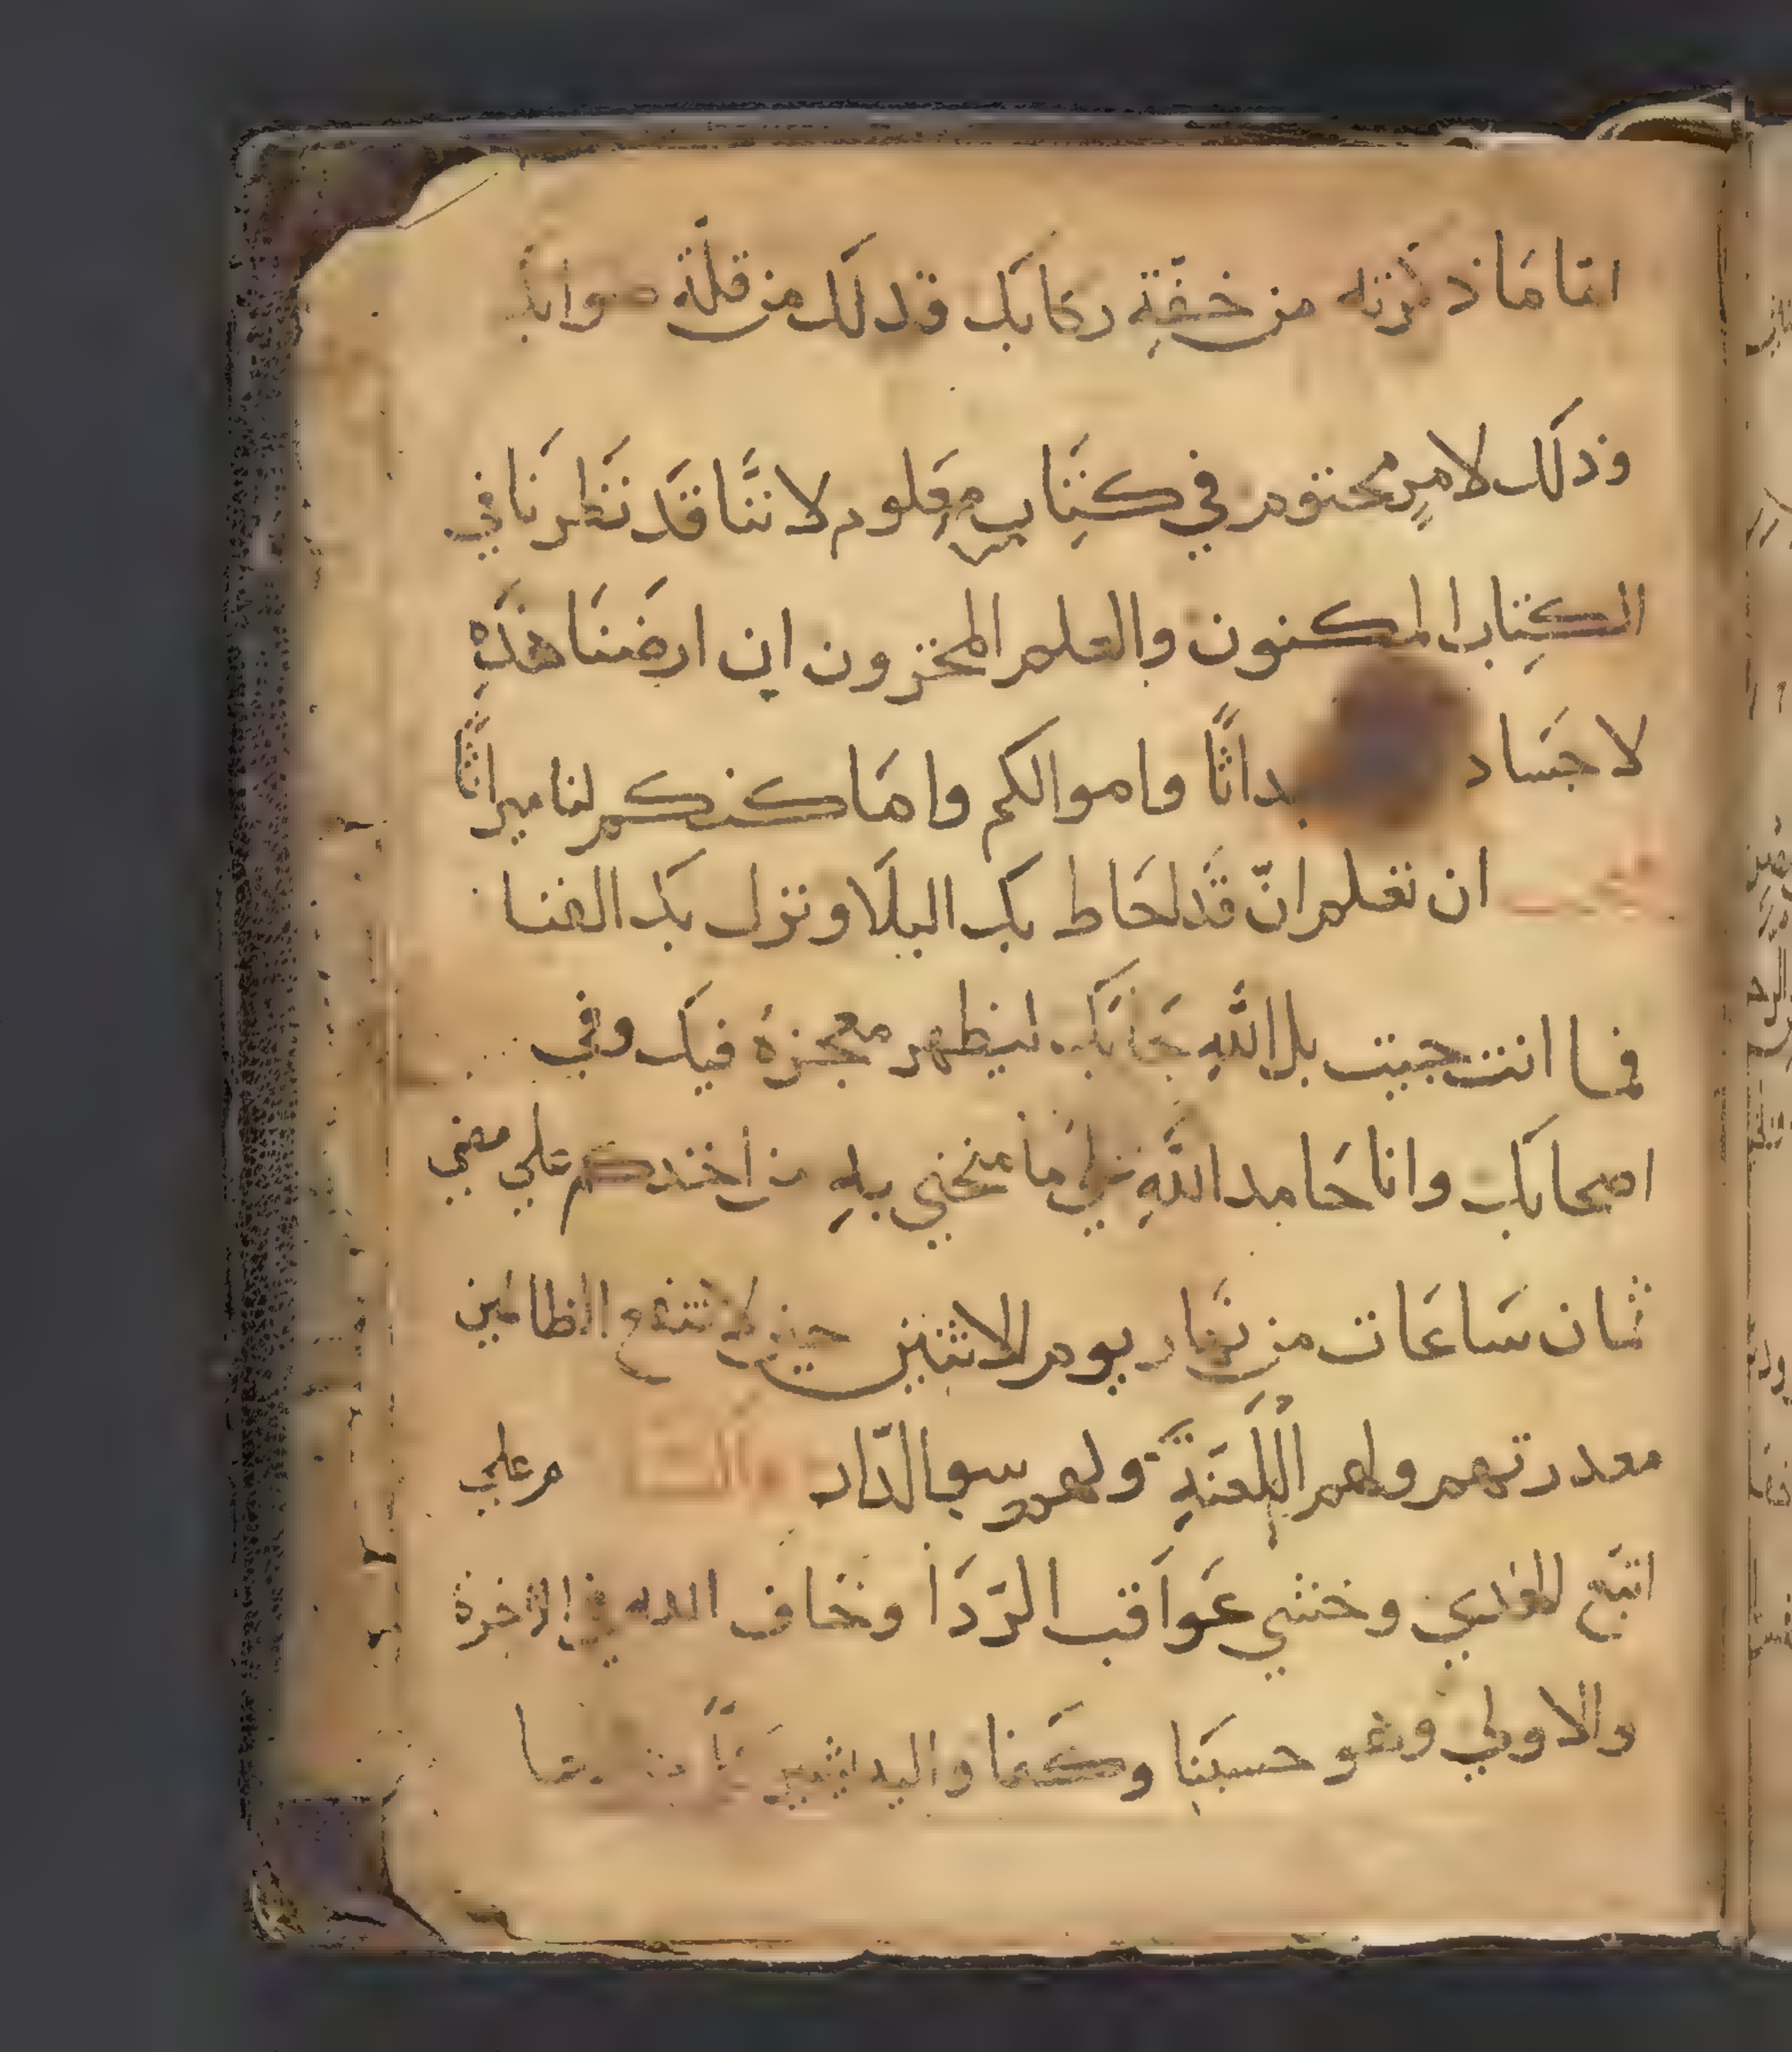 امّا مَا ذكرته من خفّتِه ركابك فدلك من قلّة صوابك
وذلك لامرٍ محتوم في كتَابٍ معَلوم لاننَّا قَد نَظرنَا في
الكتِاب المكنون والعلم المخزون ان ارضَنَا هذَه
لاجسَاد داثًا واموالكم وامَاكنكم لنا ميراثًا
ان تعلم انّ قَد احَاط بك البلَا ونزل بك الفنا
فما انت جيت بل اللّهِ جَابَك ليظهر معجزهُ فيك وفي
اصحابك وانا حَامد اللّهِ علي مَا منحني بهِ من اخدكم علي مضي
ثمان سَاعَات من نهَار يوم الاثنين حين لا تنفع الظالمين
معدرتهم ولهم اللّعنَةِ ولهم سو الدّار والسّلام علي
اتبَع الهدي وخشي عَواقب الرّدَا وخاف الله في الاخرة
والاولي وهو حسبَنا وكَفا والحمد لله